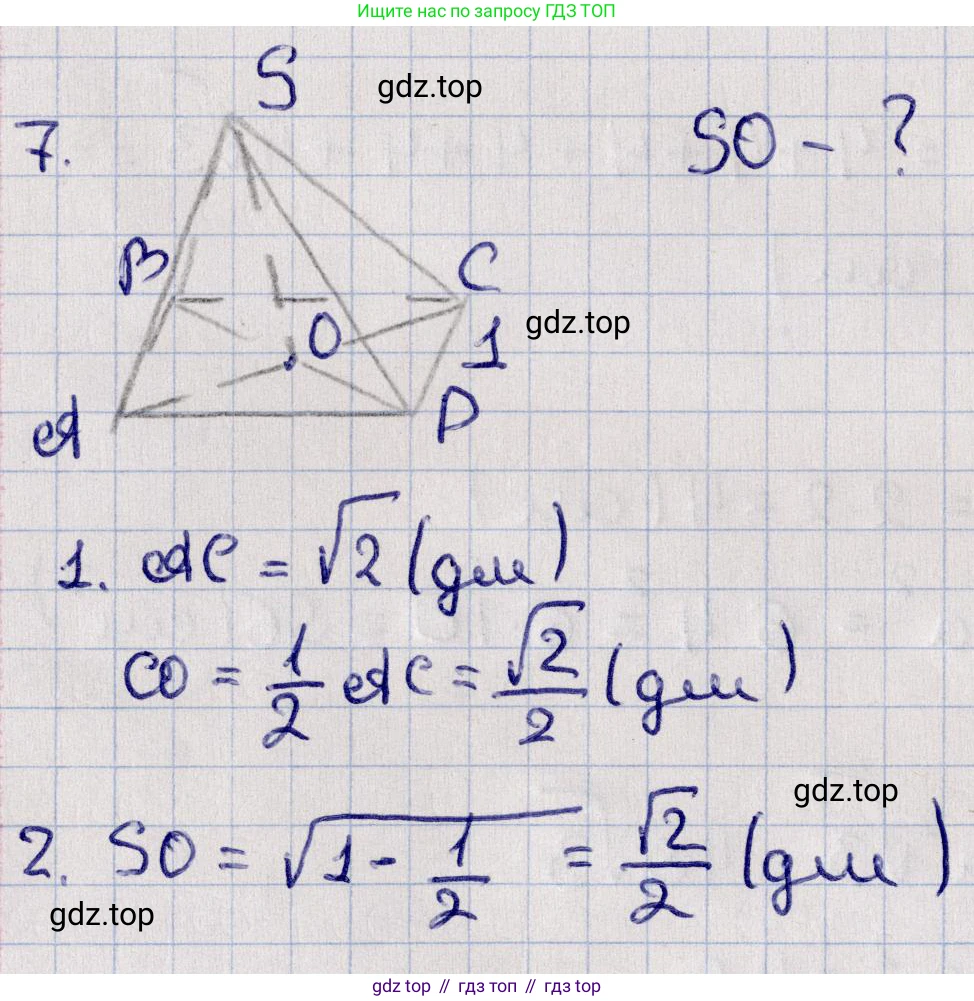 Ищите нас по запросу ГДЗ ТОП
S
gdz.top
7.
SO - ?
B
C
O
gdz.top
1
A
D
1. AC = √2 (дм)
CO = 1/2 AC = √2/2 (дм)
gdz.top
2. SO = √(1 - 1/2) = √2/2 (дм)
gdz.top
gdz top // гдз топ // гдз top